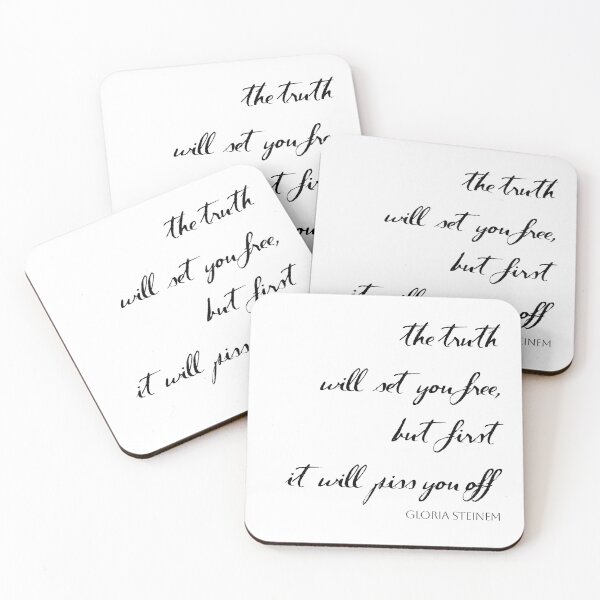 the truth
will set you
the truth
will set you free,
but first
it will piss
the truth
will set you free,
but first
it you off
the truth
will set you free,
but first
it will piss you off
GLORIA STEINEM